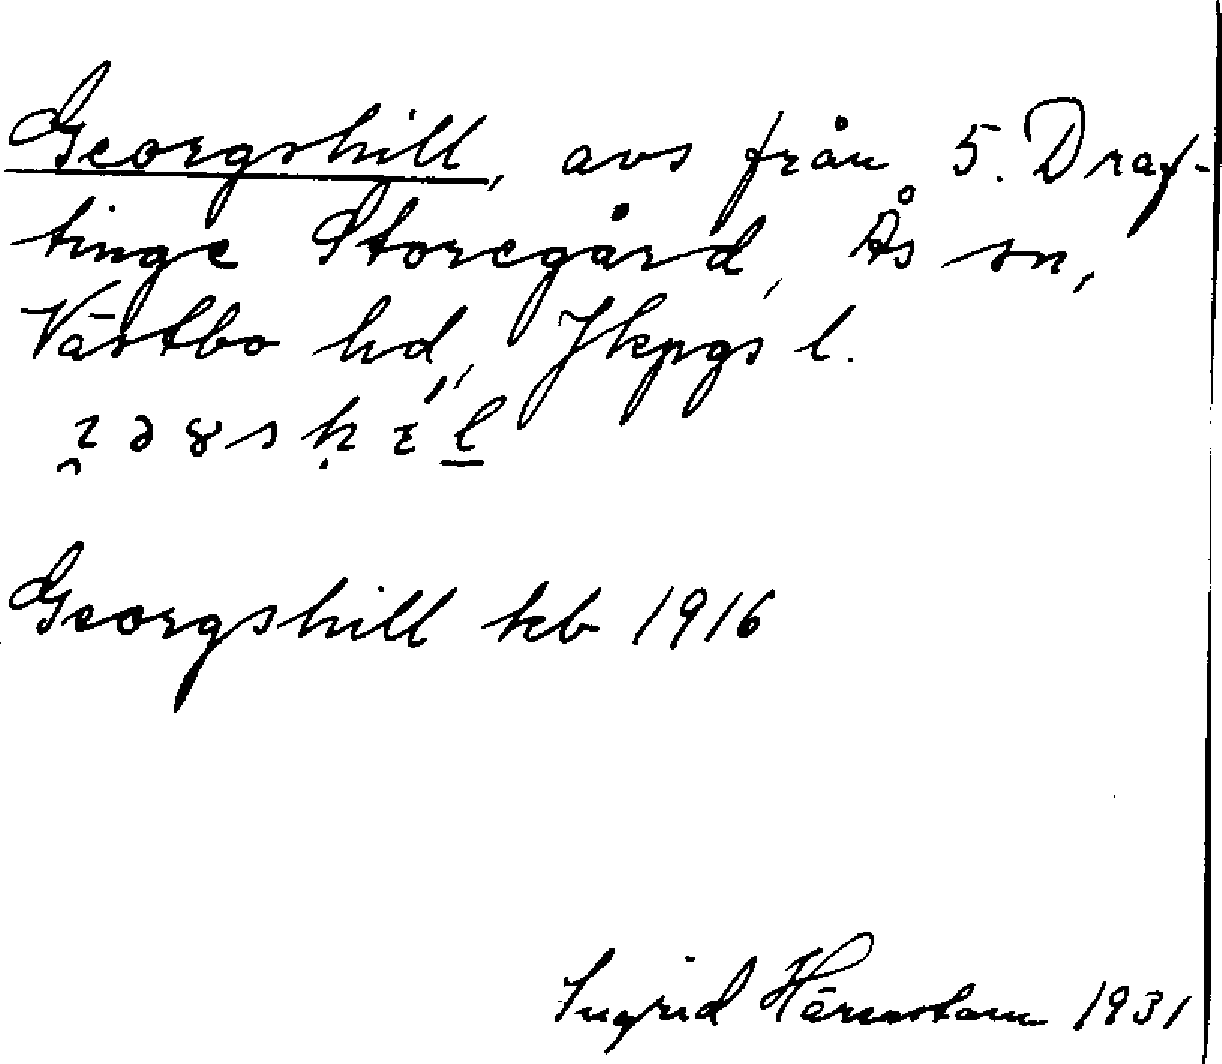 Georgshill, avs från 5. Draf-
tinge Storegård, Ås sn,
Västbo hd, Jkpgs l.
Georgshill kb 1916
Ingrid Härnstam 1931